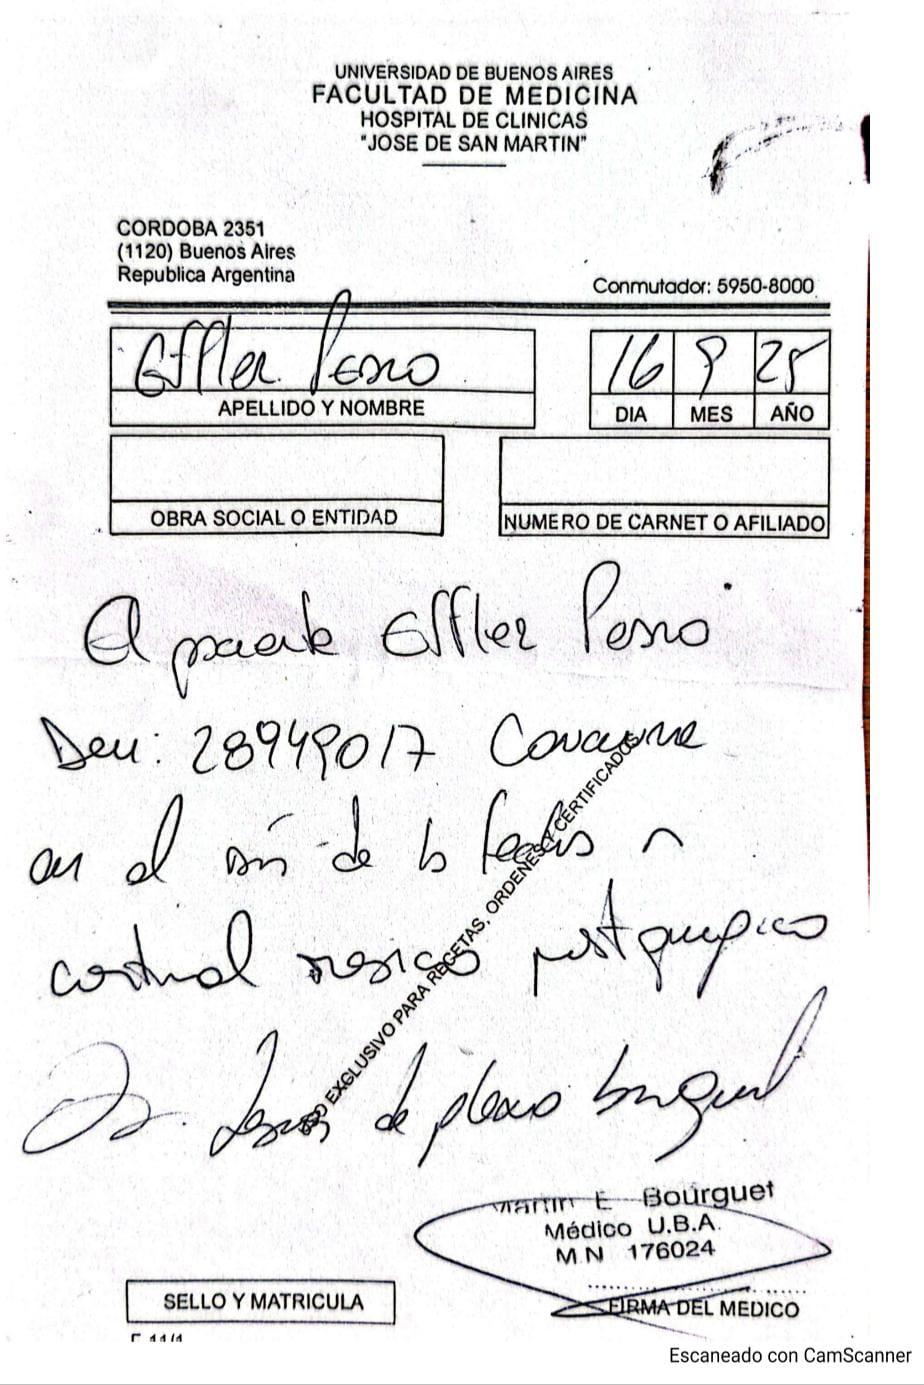 UNIVERSIDAD DE BUENOS AIRES
FACULTAD DE MEDICINA
HOSPITAL DE CLINICAS
"JOSE DE SAN MARTIN"
CORDOBA 2351
(1120) Buenos Aires
Republica Argentina
Conmutador: 5950-8000
Effler Pedro
16 9 25
APELLIDO Y NOMBRE
DIA MES AÑO
OBRA SOCIAL O ENTIDAD
NUMERO DE CARNET O AFILIADO
El paciente Effler Pedro
DNI: 28949017 Concurre
en el día de la fecha a
control médico postquirúrgico
Dx. Lesión de plexo braquial
USO EXCLUSIVO PARA RECETAS, ORDENES Y CERTIFICADOS
Martin E Bourguet
Médico U.B.A.
M N 176024
SELLO Y MATRICULA
FIRMA DEL MEDICO
Escaneado con CamScanner